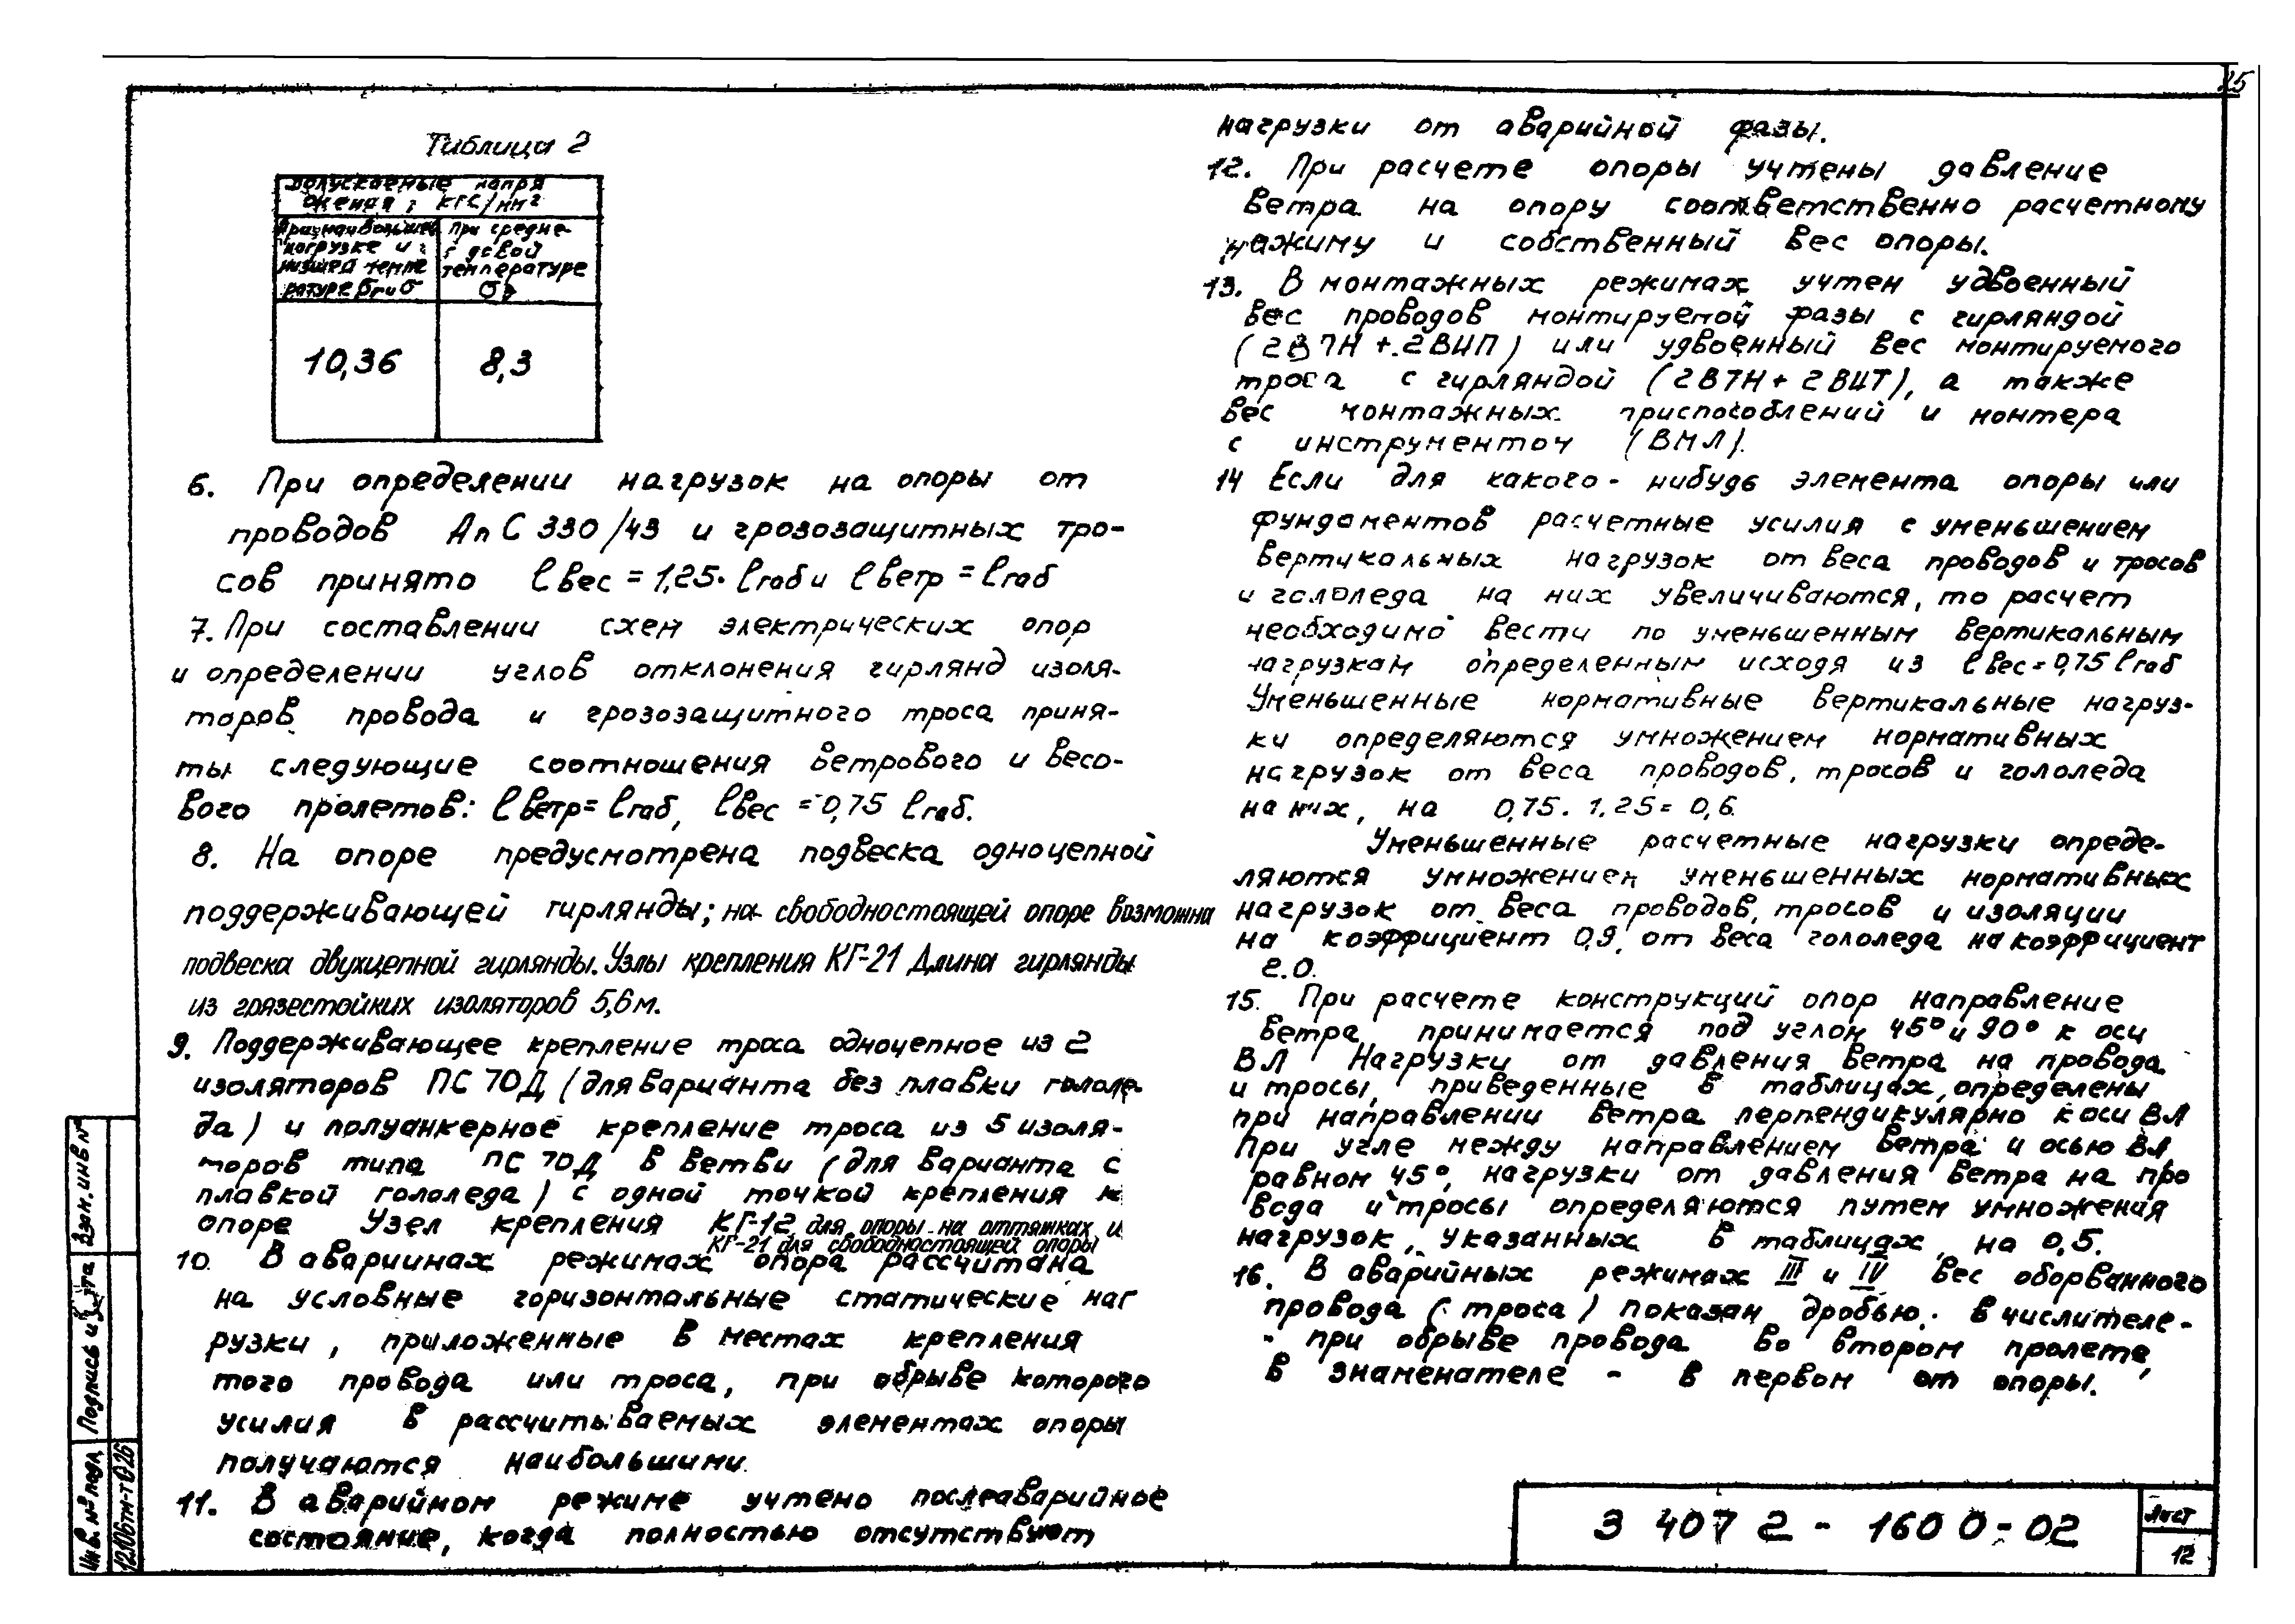 25
Таблица 2
Допускаемые напря
жения, кгс/мм²
При наибольшей
нагрузке и
низшей темпе
ратуре
При средне-
годовой
температуре
10,36
8,3
6. При определении нагрузок на опоры от
проводов АпС 330/43 и грозозащитных тро-
сов принято ℓвес = 1,25· ℓгаб и ℓветр = ℓгаб
7. При составлении схем электрических опор
и определении углов отклонения гирлянд изоля-
торов провода и грозозащитного троса приня-
ты следующие соотношения ветрового и весо-
вого пролетов: ℓветр= ℓгаб, ℓвес = 0,75 ℓгаб.
8. На опоре предусмотрена подвеска одноцепной
поддерживающей гирлянды; на свободностоящей опоре возможна
подвеска двухцепной гирлянды. Узлы крепления КГ-21 Длина гирлянды
из грязестойких изоляторов 5,6м.
9. Поддерживающее крепление троса одноцепное из 2
изоляторов ПС 70Д (для варианта без плавки гололе-
да) и полуанкерное крепление троса из 5 изоля-
торов типа ПС 70Д в ветви (для варианта с
плавкой гололеда) с одной точкой крепления к
опоре Узел крепления КГ-12 для опоры на оттяжках и
КГ-21 для свободностоящей опоры
10. В аварийнах режимах опора рассчитана
на условные горизонтальные статические наг
рузки, приложенные в местах крепления
того провода или троса, при обрыве которого
усилия в рассчитываемых элементах опоры
получаются наибольшими.
11. В аварийном режиме учтено послеаварийное
состояние, когда полностью отсутствуют
нагрузки от аварийной фазы.
12. При расчете опоры учтены давление
ветра на опору соответственно расчетному
режиму и собственный вес опоры.
13. В монтажных режимах учтен удвоенный
вес проводов монтируемой фазы с гирляндой
(2В7Н +.2ВИП) или удвоенный вес монтируемого
троса с гирляндой (2В7Н + 2ВИТ), а также
вес монтажных приспособлений и монтера
с инструментом (ВМЛ).
14 Если для какого-нибудь элемента опоры или
фундаментов расчетные усилия с уменьшением
вертикальных нагрузок от веса проводов и тросов
и гололеда на них увеличиваются, то расчет
необходимо вести по уменьшенным вертикальным
нагрузкам определенным исходя из ℓвес = 0,75 ℓгаб
Уменьшенные нормативные вертикальные нагруз-
ки определяются умножением нормативных
нагрузок от веса проводов, тросов и гололеда
на них, на 0,75. 1,25= 0,6.
Уменьшенные расчетные нагрузки опреде-
ляются умножением уменьшенных нормативных
нагрузок от веса проводов, тросов и изоляции
на коэффициент 0,9, от веса гололеда на коэффициент
2.0.
15. При расчете конструкций опор направление
ветра принимается под углом 45° и 90° к оси
ВЛ Нагрузки от давления ветра на провода
и тросы, приведенные в таблицах, определены
при направлении ветра перпендикулярно к оси ВЛ
При угле между направлением ветра и осью ВЛ
равном 45°, нагрузки от давления ветра на про
вода и тросы определяются путем умножения
нагрузок, указанных в таблицах, на 0,5.
16. В аварийных режимах III и IV вес оборванного
провода (троса) показан дробью: в числителе-
- при обрыве провода во втором пролете,
в знаменателе - в первом от опоры.
Взам. инв №
Подпись и дата
Инв. № подл.
12106тм-т0 26
3 407 2 - 160 0-02
Лист
12